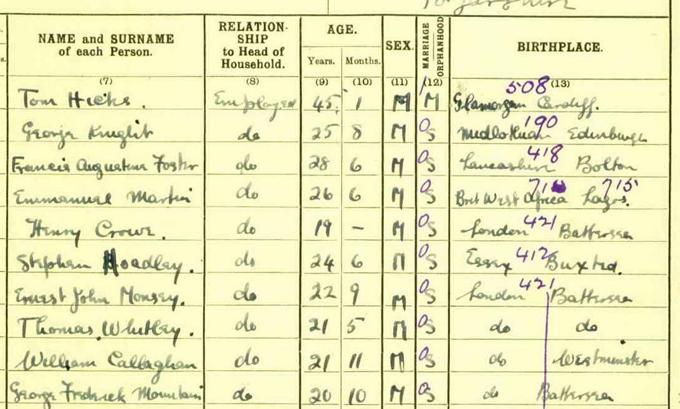 NAME and SURNAME of each Person. RELATION-SHIP to Head of Household. AGE. SEX. MARRIAGE ORPHANHOOD BIRTHPLACE.
Years. Months.
(7) (8) (9) (10) (11) (12) (13)
Tom Hicks. Employee 45 1 M M Glamorgan 508 Cardiff.
George Knight do 25 8 M O S Midlothian 190 Edinburgh
Francis Augustus Foster do 28 6 M O S Lancashire 418 Bolton
Emmanuel Martin do 26 6 M O S Brit West Africa Lagos. 715
Henry Crowe. do 19 – M O S London 421 Battersea
Stephen Hoadley. do 24 6 M O S Essex 412 Buxted.
Ernest John Monsey. do 22 9 M O S London 421 Battersea
Thomas Whitley. do 21 5 M O S do do
William Callaghan do 21 11 M O S do Westminster
George Frederick Mountain do 20 10 M O S do Battersea